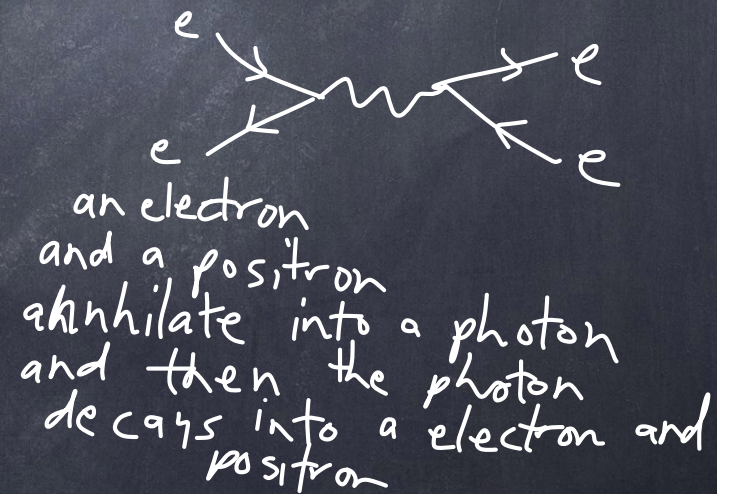 e
e
e
e
an electron
and a positron
ahnhilate into a photon
and then the photon
decays into a electron and
positron